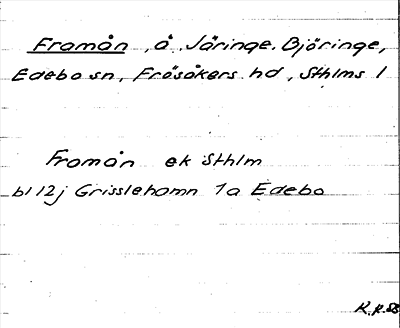 Framån , å , Järinge. Björinge,
Edebo sn, Frösåkers hd, Sthlms l
Framån ek Sthlm
bl 12j Grisslehamn 1a Edebo
K.R.53